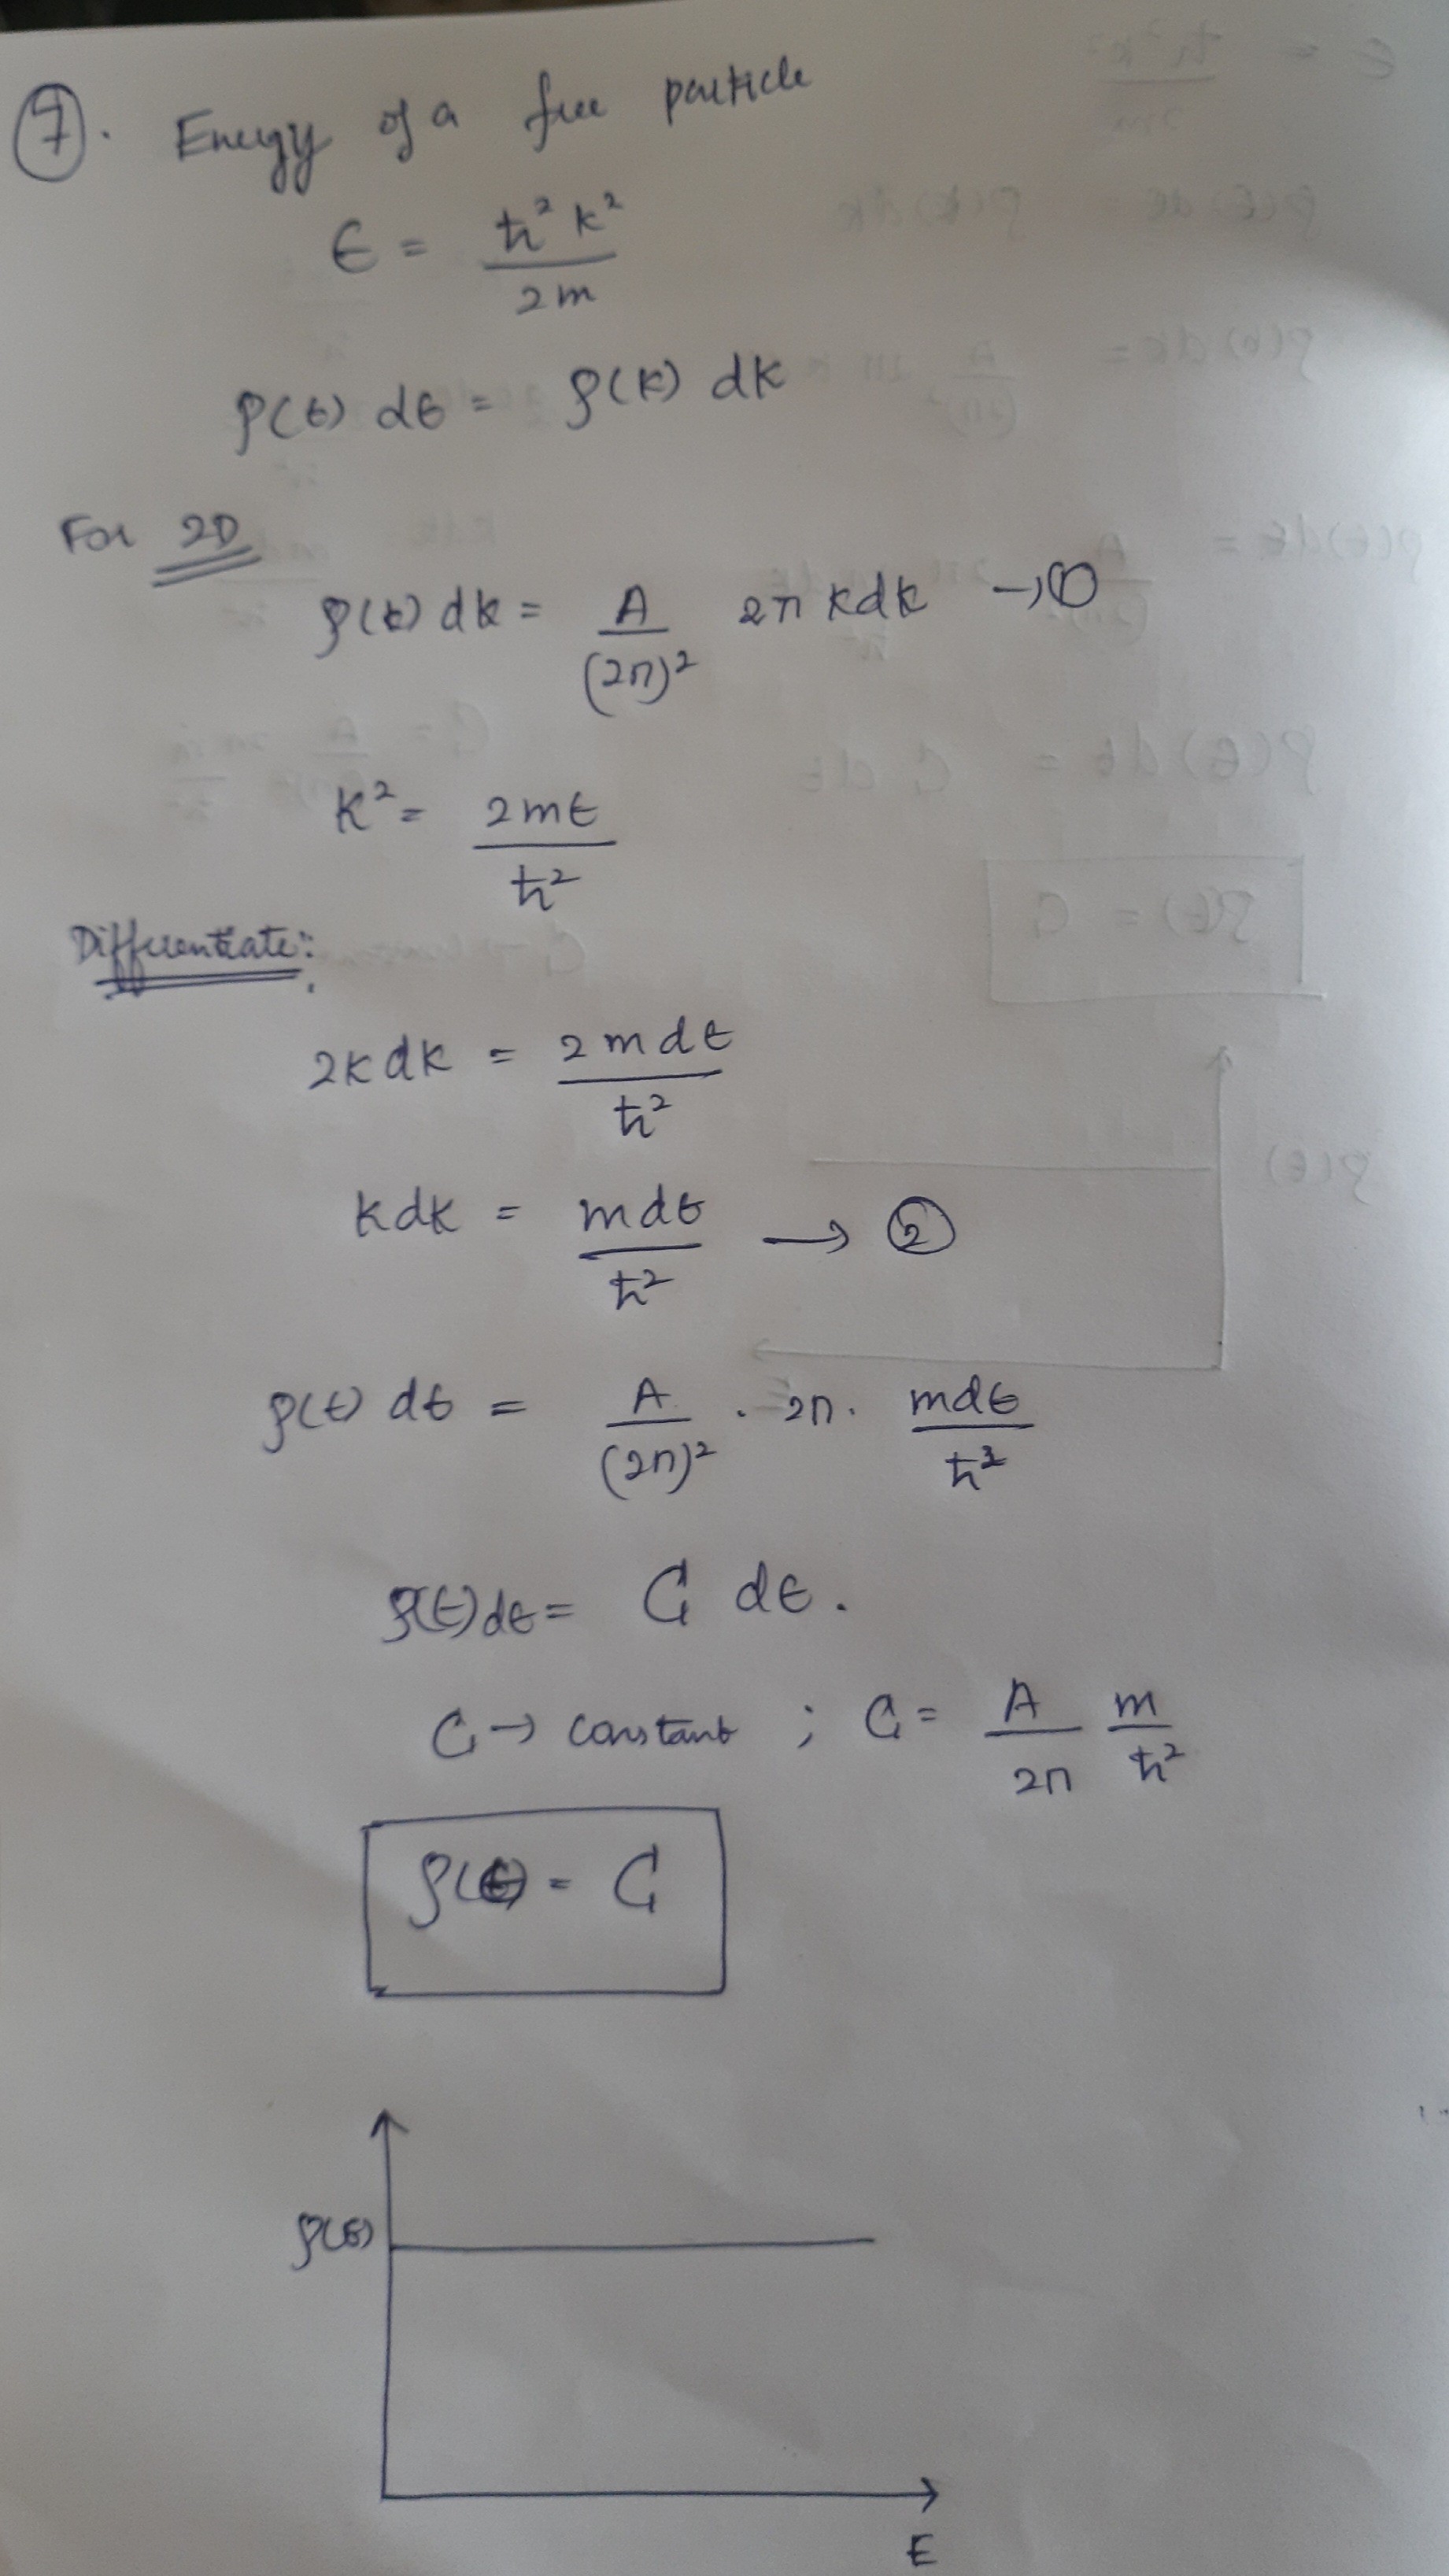 7. Energy of a free particle
ε = ħ²k² / 2m
ρ(ε) dε = ρ(k) dk
For 2D
ρ(k) dk = A / (2π)² 2π k dk → ①
k² = 2mε / ħ²
Differentiate:
2k dk = 2 m dε / ħ²
k dk = m dε / ħ² → ②
ρ(ε) dε = A / (2π)² . 2π . m dε / ħ²
ρ(ε) dε = C dε .
C → constant ; C = A / 2π m / ħ²
ρ(ε) = C
ρ(ε)
E